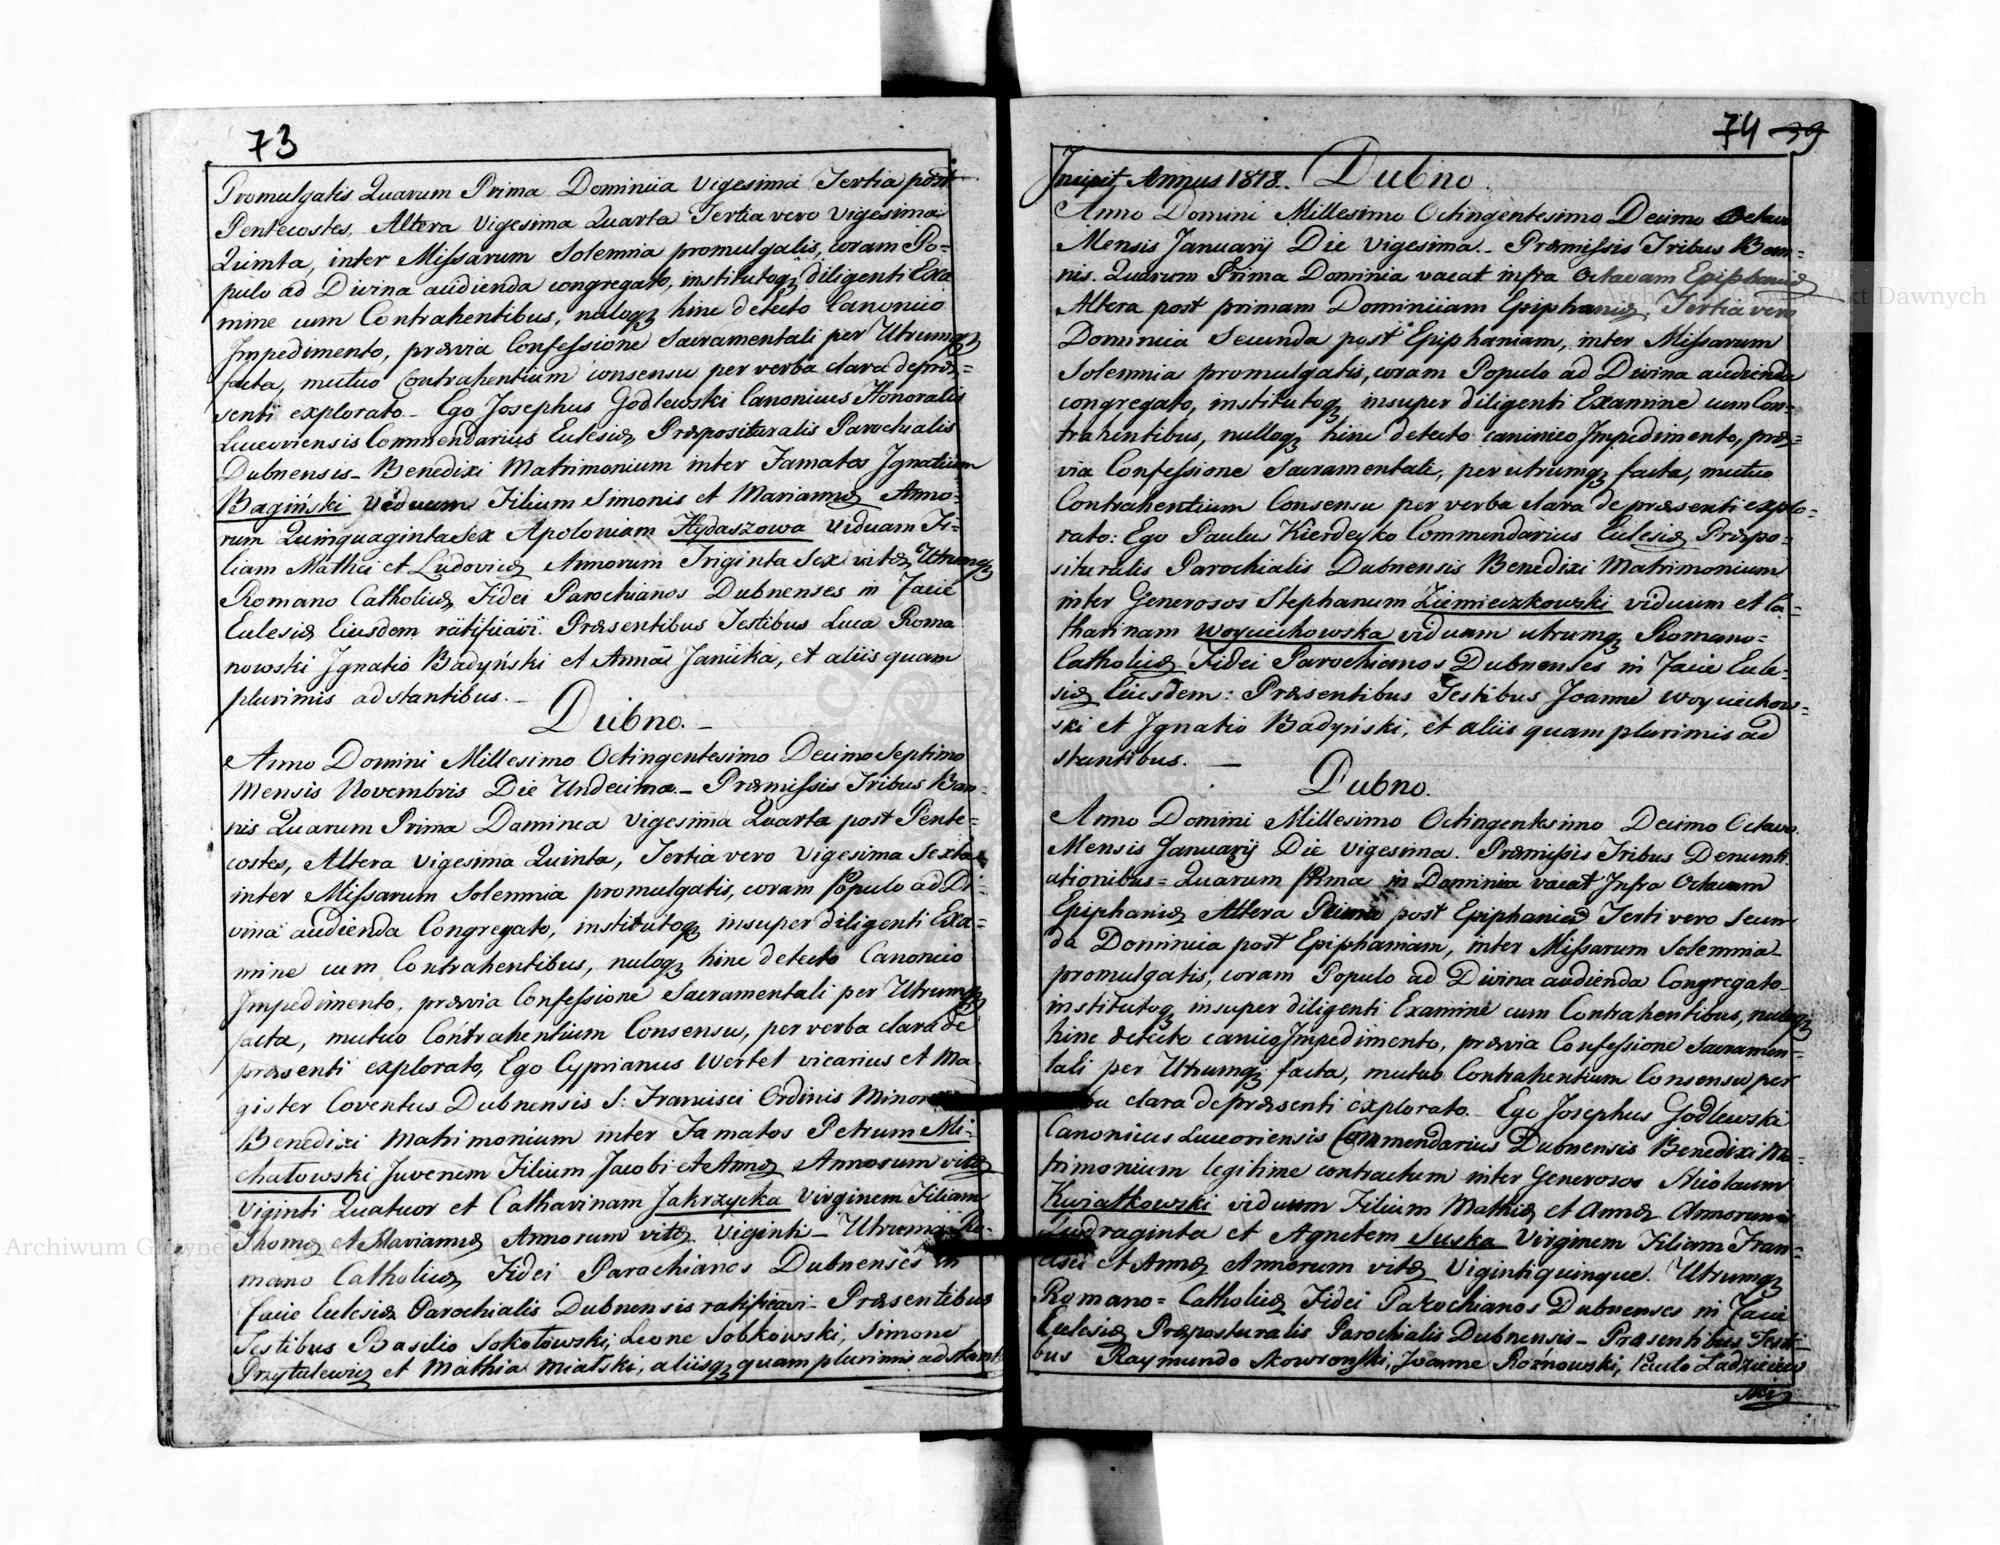 73
Promulgatis Quarum Prima Dominica Vigesima Tertia post
Pentecostes, Altera Vigesima Quarta Tertia vero Vigesima
Quinta, inter Missarum Solemna promulgatis, coram Po-
pulo ad Divina audienda congregato, institutoq diligenti Exa
mine cum Contrahentibus, nuloq hinc detecto Canonico
Impedimento, prævia Confessione Sacramentali per Utrumq
facta, mutuo Contrahentium consensu per verba clara de præ-
senti explorato. Ego Josephus Godlewski Canonicus Honoralis
Luceoriensis Commendarius Eclesiæ Præpositualis Parochialis
Dubnensis - Benedixi Matrimonium inter Famatos Ignatium
Bagiński Viduum Filium Simonis et Mariannæ Anno-
rum Quinquaginta sex Apoloniam Hydaszowa Viduam Fi-
liam Mathei et Ludovicæ Annorum Triginta Sex vitæ Utrumq
Romano Catholicæ Fidei Parochianos Dubnenses in Facie
Eclesiæ Eiusdem ratificavi. Præsentibus Testibus Luca Roma
nowski Ignatio Badyński et Anna Janicka, et aliis quam
plurimis adstantibus. -
Dubno. -
Anno Domini Millesimo Octingentesimo Decimo Septimo
Mensis Novembris Die Undecima. - Præmissis Tribus Ban-
nis Quarum Prima Daminica Vigesima Quarta post Pente-
costes, Altera Vigesima Quinta, Tertia vero Vigesima Sexta
inter Missarum Solemnia promulgatis, coram Populo ad Di-
vina audienda Congregato, institutoq insuper diligenti Exa-
mine cum Contrahentibus, nuloq hinc detecto Canonico
Impedimento, prævia Confessione Sacramentali per Utrumq
facta, mutuo Contrahentium Consensu, per verba clara de
præsenti explorato, Ego Cyprianus Wertel vicarius et Ma
gister Coventus Dubnensis S: Francisci Ordinis Minor
Benedixi Matrimonium inter Famatos Petrum Mi-
chałowski Juvenem Filium Jacobi et Annæ Annorum vitæ
Viginti Quatuor et Catharinam Jakrzycka Virginem Filiam
Thomæ et Mariannæ Annorum vitæ Viginti - Utrumq Ro-
mano Catholicæ Fidei Parochianos Dubnenses in
facie Eclesiæ Parochialis Dubnensis ratificavi - Præsentibus
Testibus Basilio Sokołowski, Leone Sobkowski, Simone
Przytulewicz et Mathia Miatski, aliisq quam plurimis adstant
74 39
Incipit Annus 1818. Dubno.
Anno Domini Millesimo Octingentesimo Decimo Octavo
Mensis Januarij Die Vigesima - Præmissis Tribus Ban-
nis. Quarum Prima Dominia vacat infra Octavam Epiphaniæ
Altera post primam Dominiiam Epiphaniæ, Tertia vero
Dominica Secunda post Epiphaniam, inter Missarum
Solemnia promulgatis, coram Populo ad Divina audienda
congregato, institutoq insuper diligenti Examine cum Con-
trahentibus, nulloq hinc detecto caninico Impedimento, præ-
via Confessione Sacramentali, per utrumq facta, mutuo
Contrahentium Consensu per verba clara de præsenti explo-
rato: Ego Paulus Kierdeyko Commendarius Eclesiæ Præpo-
situralis Parochialis Dubnensis Benedixi Matrimonium
inter Generosos Stephanum Ziemieczkowski viduum et Ca-
tharinam Woyciechowska viduam utrumq Romano-
Catholicæ Fidei Parochianos Dubnenses in Facie Ecle-
siæ Eiusdem: Præsentibus Testibus Joanne Woyciechow-
ski et Ignatio Badyński, et aliis quam plurimis ad
stantibus. -
Dubno.
Anno Domini Millesimo Octingentesimo Decimo Octavo.
Mensis Januarij Die Vigesima. Præmissis Tribus Denunti
ationibus = Quarum Prima in Dominia vacat Infra Octavam
Epiphaniæ Altera Prima post Epiphaniæ Terti vero Secun
da Dominica post Epiphaniam, inter Missarum Solemnia
promulgatis, coram Populo ad Divina audienda Congregato
institutoq insuper diligenti Examine cum Contrahentibus, nuloq
hinc detecto canico Impedimento, prævia Confessione Sacramen-
tali per Utrumq facta, mutuo Contrahentium Consensu per
ba clara de præsenti explorato. Ego Josephus Godlewski
Canonicus Luceoriensis Commendarius Dubnensis Benedixi Ma-
trimonium legitime contractum inter Generosos Nicolaum
Kwiatkowski viduum Filium Mathiæ et Annæ Annorum
Quadraginta et Agnetem Suska Virginem Filiam Fran-
cisci et Annæ Annorum vitæ Vigintiquinque. Utrumq
Romano = Catholicæ Fidei Parochianos Dubnenses in Facie
Eclesiæ Præposturalis Parochialis Dubnensis - Præsentibus Testi-
bus Raymundo Skowroński, Joanne Rożnowski, Paulo Ladziewicz
Archiwum Główne Akt Dawnych